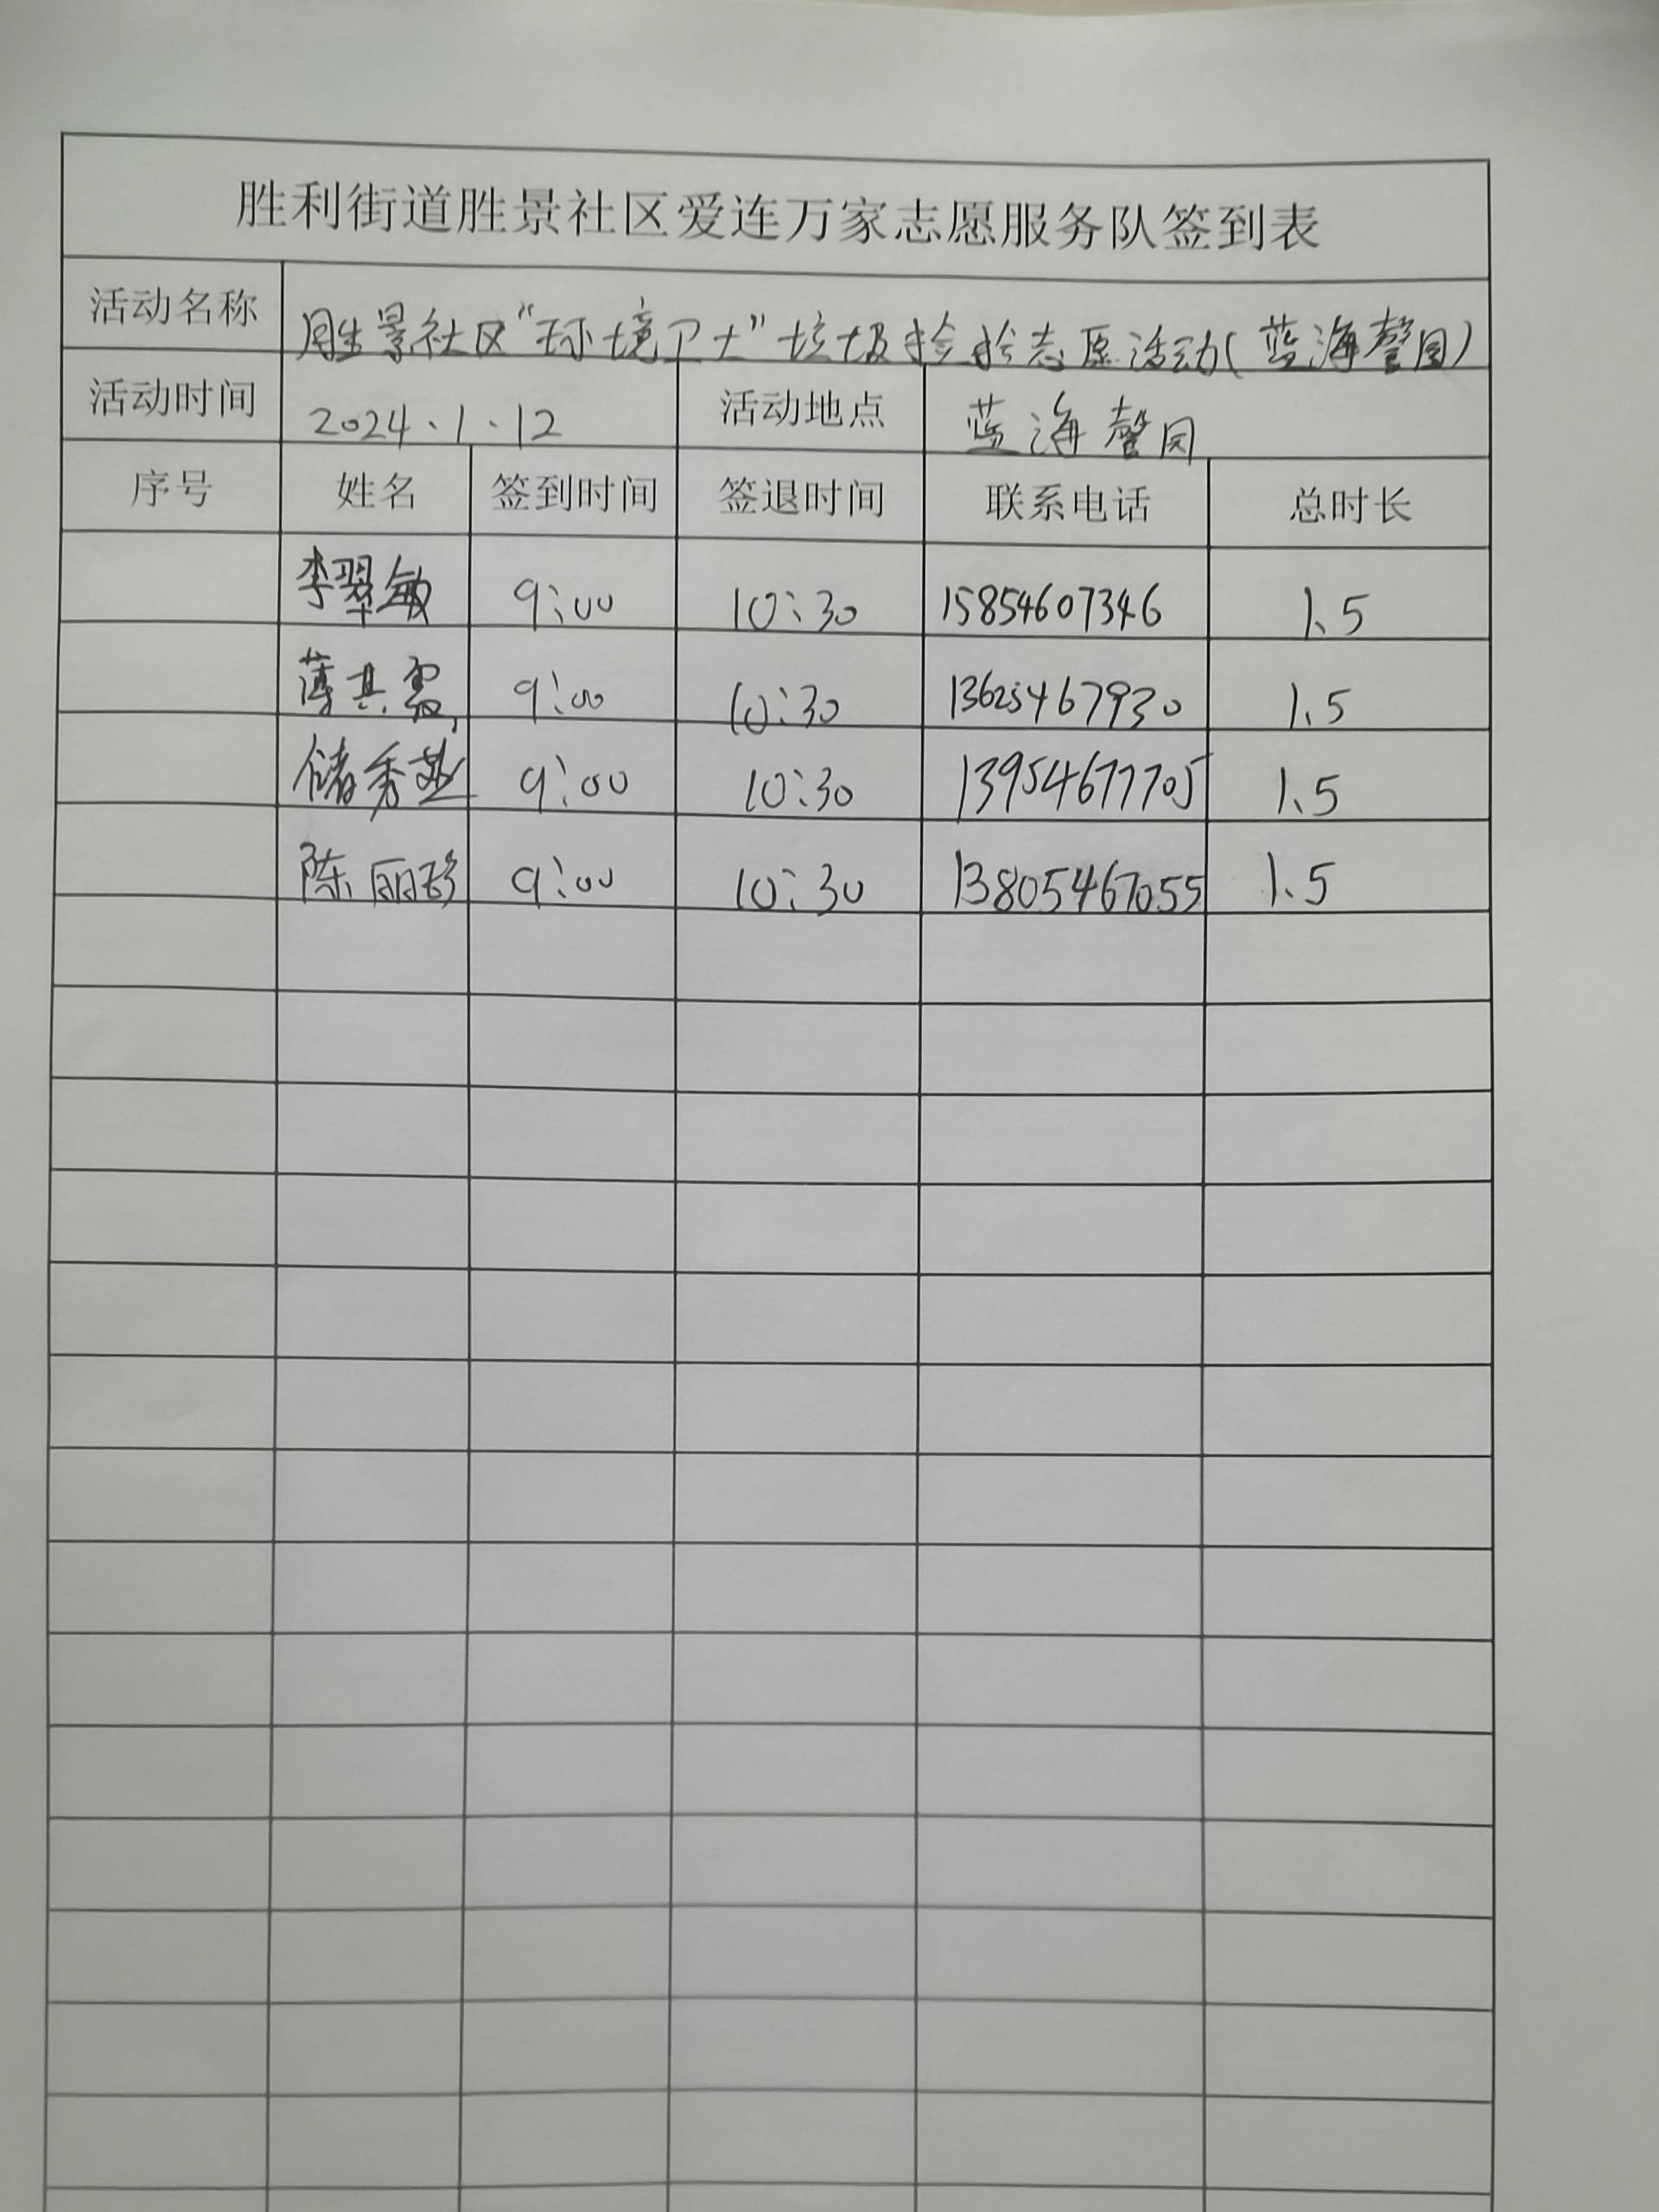 胜利街道胜景社区爱连万家志愿服务队签到表
活动名称 胜景社区“环境卫士”垃圾捡拾志愿活动(蓝海馨园)
活动时间 2024.1.12 活动地点 蓝海馨园
序号 姓名 签到时间 签退时间 联系电话 总时长
李翠敏 9:00 10:30 15854607346 1.5
薄其霞 9:00 10:30 13625467930 1.5
储秀燕 9:00 10:30 13954677705 1.5
陈丽 9:00 10:30 13805467055 1.5